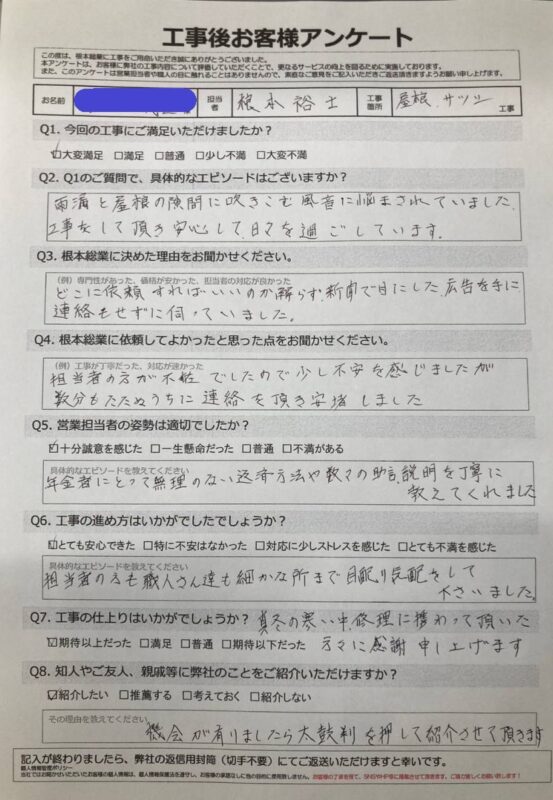 工事後お客様アンケート
この度は、根本総業に工事をご用命いただき誠にありがとうございました。
本アンケートは、お客様に弊社の工事内容について評価していただくことで、更なるサービスの向上を図るために実施しております。
また、このアンケートは営業担当者や職人の目に触れることはありませんので、素直なご意見をご記入いただきご返送頂きますようお願い申し上げます。
お名前 担当者 根本裕士 工事箇所 屋根、サッシ 工事
Q1. 今回の工事にご満足いただけましたか？
☑大変満足 □満足 □普通 □少し不満 □大変不満
Q2. Q1のご質問で、具体的なエピソードはございますか？
雨漏と屋根の隙間に吹きこむ風音に悩まされていました、
工事をして頂き安心して日々を過ごしています。
Q3. 根本総業に決めた理由をお聞かせください。
（例）専門性があった、価格が安かった、担当者の対応が良かった
どこに依頼すればいいのか解らず新聞で目にした広告を手に
連絡もせずに伺っていました。
Q4. 根本総業に依頼してよかったと思った点をお聞かせください。
（例）工事が丁寧だった、対応が速かった
担当者の方が不在でしたので少し不安を感じましたが
数分もたたぬうちに連絡を頂き安堵しました
Q5. 営業担当者の姿勢は適切でしたか？
☑十分誠意を感じた □一生懸命だった □普通 □不満がある
具体的なエピソードを教えてください
年金者にとって無理のない返済方法や数々の助言説明を丁寧に
教えてくれました
Q6. 工事の進め方はいかがでしたでしょうか？
☑とても安心できた □特に不安はなかった □対応に少しストレスを感じた □とても不満を感じた
具体的なエピソードを教えてください
担当者の方も職人さん達も細かな所まで目配り気配をして
下さいました。
Q7. 工事の仕上りはいかがでしょうか？ 真冬の寒い中、修理に携わって頂いた
☑期待以上だった □満足 □普通 □期待以下だった 方々に感謝申し上げます
Q8. 知人やご友人、親戚等に弊社のことをご紹介いただけますか？
☑紹介したい □推薦する □考えておく □紹介しない
その理由を教えてください
機会が有りましたら太鼓判を押して紹介させて頂きます
記入が終わりましたら、弊社の返信用封筒（切手不要）にてご返送いただけますと幸いです。
個人情報管理ポリシー
当社ではお聞かせいただいたお客様の個人情報は、個人情報保護法を遵守し、お客様の承諾なしに他の目的に使用致しません。お客様の了承を得て、SNSやHP等に掲載させて頂きます。ご協力宜しくお願い致します！